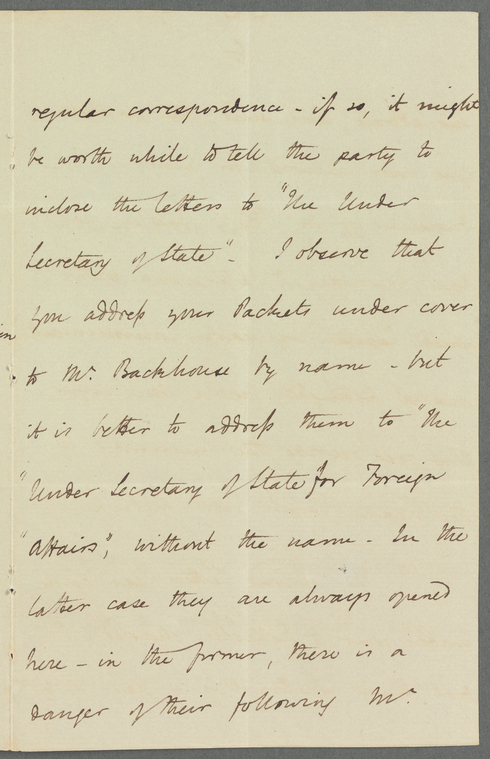 regular correspondence - if so, it might
be worth while to tell the party to
inclose the letters to "The Under
Secretary of State" - I observe that
you address your Packets under cover
to Mr. Backhouse by name - but
it is better to address them to "the
"Under Secretary of State for Foreign
"Affairs", without the name - In the
latter case they are always opened
here - in the former, there is a
danger of their following Mr.